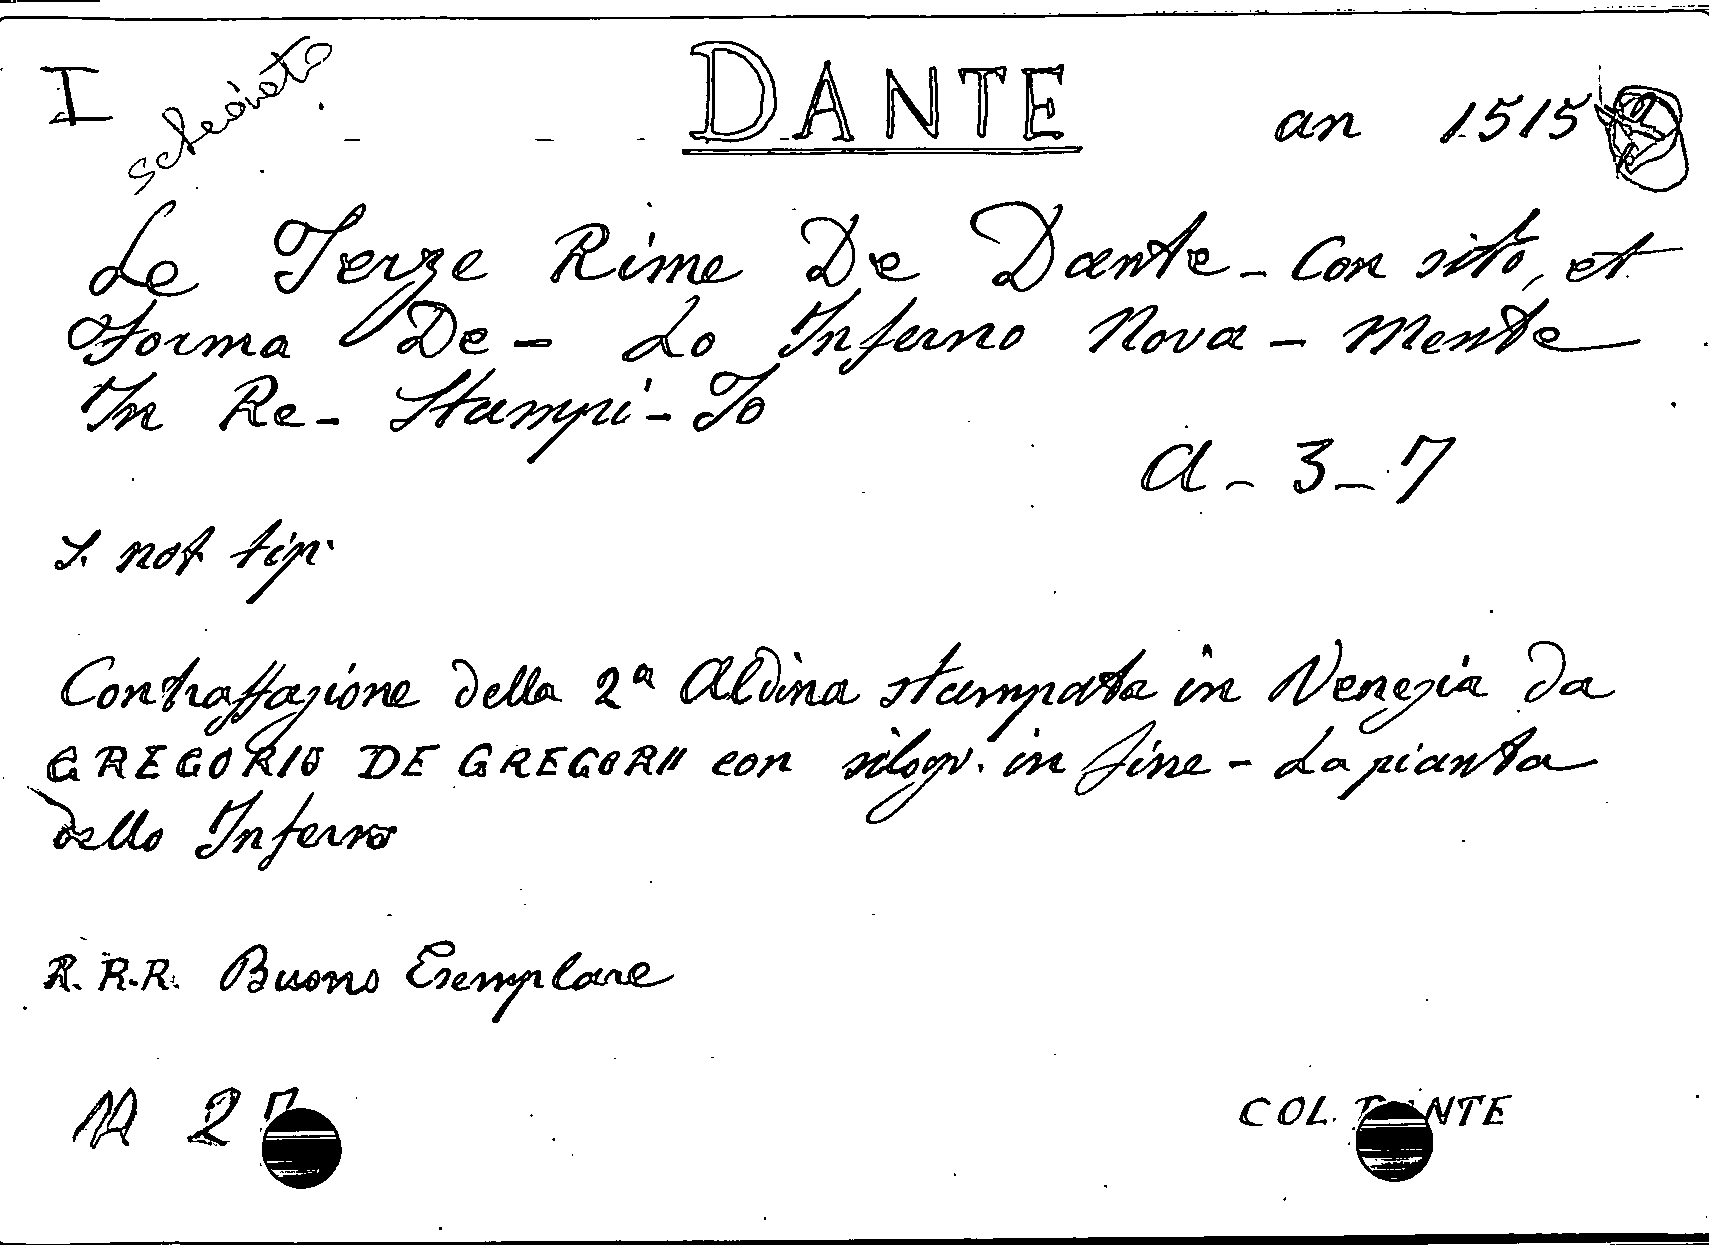 I schedato DANTE an 1515
Le Terze Rime De Dante - Con sito, et
Forma De - Lo Inferno Nova - Mente
In Re - Stampi - To
A - 3 - 7
S. not tip.
Contraffazione della 2ª Aldina stampata in Venezia da
GREGORIO DE GREGORII con silogr. in fine - La pianta
dello Inferno
R. R. R. Buono Esemplare
27
COL. DANTE